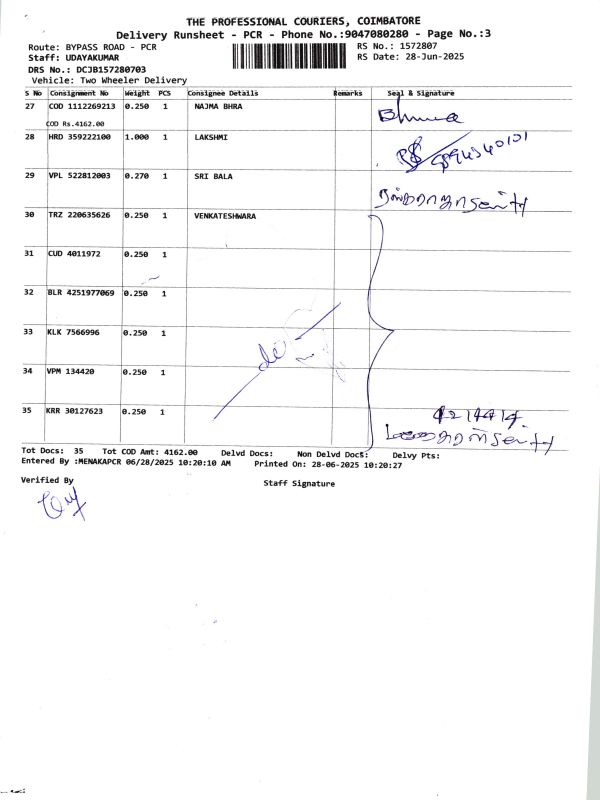 THE PROFESSIONAL COURIERS, COIMBATORE
Delivery Runsheet - PCR - Phone No.:9047080280 - Page No.:3
Route: BYPASS ROAD - PCR RS No.: 1572807
Staff: UDAYAKUMAR RS Date: 28-Jun-2025
DRS No.: DCJB157280703
Vehicle: Two Wheeler Delivery
S No Consignment No Weight PCS Consignee Details Remarks Seal & Signature
27 COD 1112269213 0.250 1 NAJMA BHRA
COD Rs.4162.00
28 HRD 359222100 1.000 1 LAKSHMI
29 VPL 522812003 0.270 1 SRI BALA
30 TRZ 220635626 0.250 1 VENKATESHWARA
31 CUD 4011972 0.250 1
32 BLR 4251977069 0.250 1
33 KLK 7566996 0.250 1
34 VPM 134420 0.250 1
35 KRR 30127623 0.250 1
Tot Docs: 35 Tot COD Amt: 4162.00 Delvd Docs: Non Delvd Docs: Delvy Pts:
Entered By :MENAKAPCR 06/28/2025 10:20:10 AM Printed On: 28-06-2025 10:20:27
Verified By Staff Signature